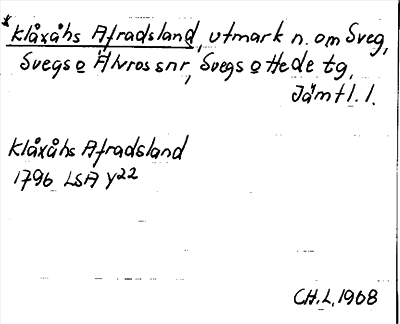 *Klåxåhs Afradsland, utmark n. om Sveg,
Svegs o Älvros snr, Svegs o Hede tg,
Jämtl. l.
Klåxåhs Afradsland
1796 LSA Y22
CH.L. 1968